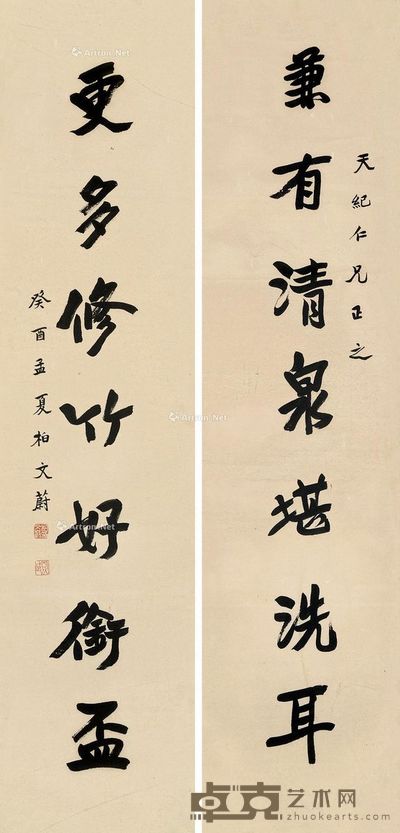 天紀仁兄正之
兼有清泉堪洗耳
更多修竹好銜盃
癸酉孟夏柏文蔚
Artron.Net
Artron.Net
Artron.Net
Artron.Net
Artron.Net
卓克艺术网
zhuokearts.com